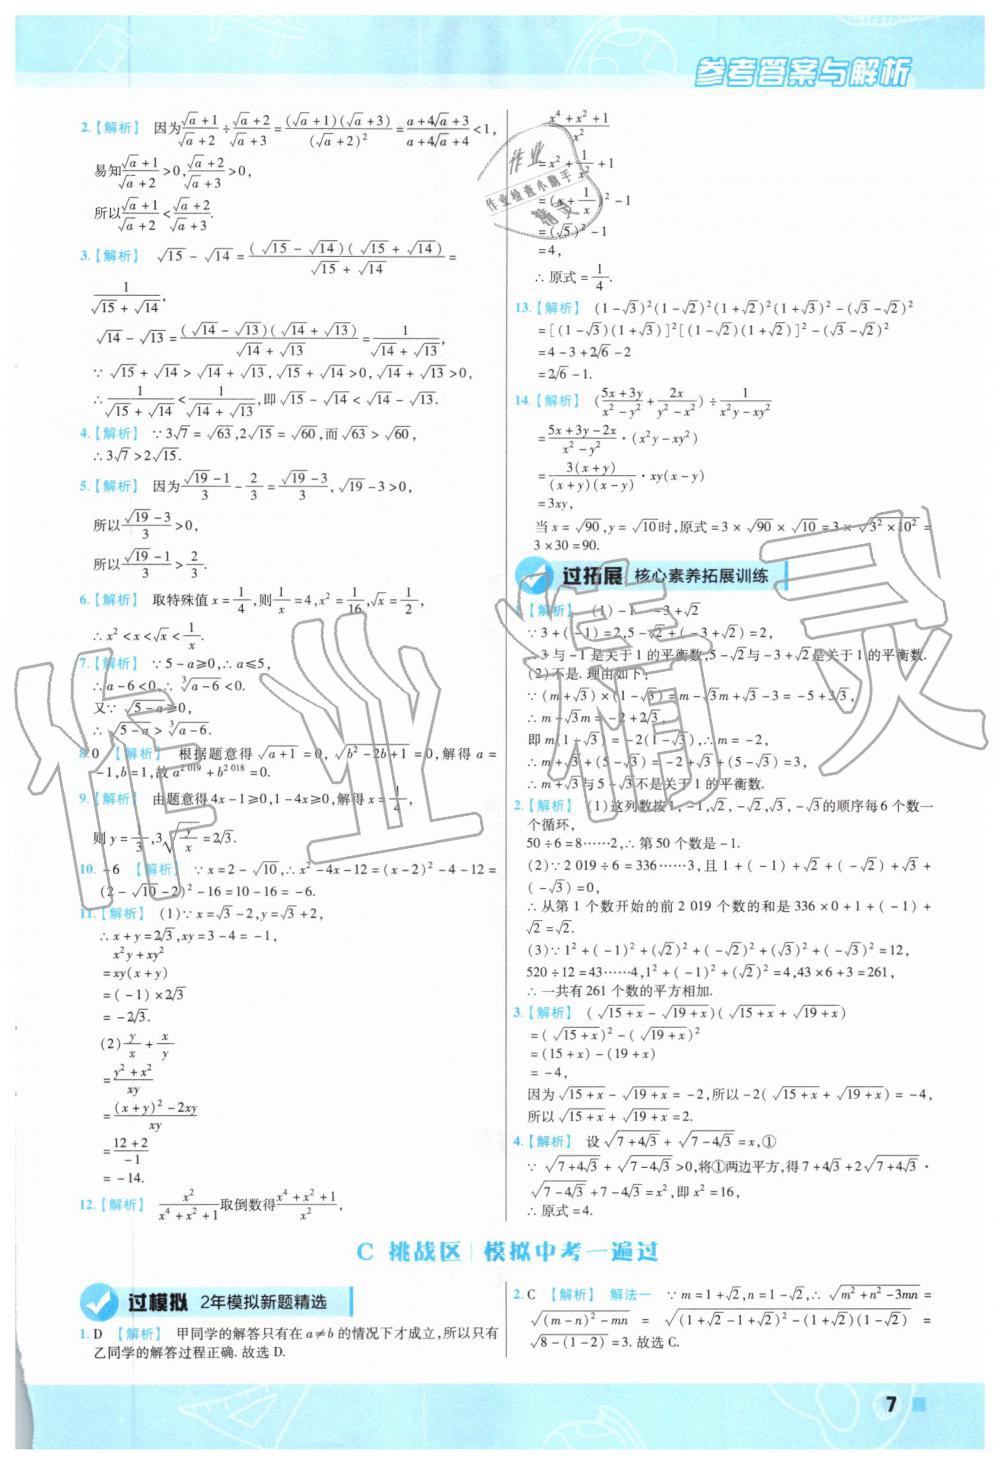 参考答案与解析
2.【解析】 因为(√a+1)/(√a+2)÷(√a+2)/(√a+3)=(√a+1)(√a+3)/(√a+2)²=(a+4√a+3)/(a+4√a+4)<1,
易知(√a+1)/(√a+2)>0,(√a+2)/(√a+3)>0,
所以(√a+1)/(√a+2)<(√a+2)/(√a+3).
3.【解析】 √15-√14=(√15-√14)(√15+√14)/(√15+√14)=
1/(√15+√14),
√14-√13=(√14-√13)(√14+√13)/(√14+√13)=1/(√14+√13),
∵√15+√14>√14+√13,√15+√14>0,√14+√13>0,
∴1/(√15+√14)<1/(√14+√13),即√15-√14<√14-√13.
4.【解析】 ∵3√7=√63,2√15=√60,而√63>√60,
∴3√7>2√15.
5.【解析】 因为(√19-1)/3-2/3=(√19-3)/3,√19-3>0,
所以(√19-3)/3>0,
所以(√19-1)/3>2/3.
6.【解析】 取特殊值x=1/4,则1/x=4,x²=1/16,√x=1/2,
∴x²<x<√x<1/x.
7.【解析】 ∵5-a≥0,∴a≤5,
∴a-6<0,∴³√(a-6)<0.
又∵√(5-a)≥0,
∴√(5-a)>³√(a-6).
8.0 【解析】 根据题意得√(a+1)=0,√(b²-2b+1)=0,解得a=
-1,b=1,故a²⁰¹⁹+b²⁰¹⁸=0.
9.【解析】 由题意得4x-1≥0,1-4x≥0,解得x=1/4,
则y=1/3,3√(y/x)=2√3.
10.-6 【解析】 ∵x=2-√10,∴x²-4x-12=(x-2)²-4-12=
(2-√10-2)²-16=10-16=-6.
11.【解析】 (1)∵x=√3-2,y=√3+2,
∴x+y=2√3,xy=3-4=-1,
x²y+xy²
=xy(x+y)
=(-1)×2√3
=-2√3.
(2)y/x+x/y
=(y²+x²)/xy
=((x+y)²-2xy)/xy
=(12+2)/(-1)
=-14.
12.【解析】 x²/(x⁴+x²+1)取倒数得(x⁴+x²+1)/x²,
(x⁴+x²+1)/x²
=x²+1/x²+1
=(x+1/x)²-1
=(√5)²-1
=4,
∴原式=1/4.
13.【解析】 (1-√3)²(1-√2)²(1+√2)²(1+√3)²-(√3-√2)²
=[(1-√3)(1+√3)]²[(1-√2)(1+√2)]²-(√3-√2)²
=4-3+2√6-2
=2√6-1.
14.【解析】 ((5x+3y)/(x²-y²)+2x/(y²-x²))÷1/(x²y-xy²)
=(5x+3y-2x)/(x²-y²)·(x²y-xy²)
=3(x+y)/((x+y)(x-y))·xy(x-y)
=3xy,
当x=√90,y=√10时,原式=3×√90×√10=3×√(3²×10²)=
3×30=90.
过拓展 核心素养拓展训练
1.【解析】 (1)-1 -3+√2
∵3+(-1)=2,5-√2+(-3+√2)=2,
∴3与-1是关于1的平衡数,5-√2与-3+√2是关于1的平衡数.
(2)不是.理由如下:
∵(m+√3)×(1-√3)=m-√3m+√3-3=-5+3√3,
∴m-√3m=-2+2√3,
即m(1-√3)=-2(1-√3),∴m=-2,
∴m+√3+(5-√3)=-2+√3+(5-√3)=3,
∴m+√3与5-√3不是关于1的平衡数.
2.【解析】 (1)这列数按1,-1,√2,-√2,√3,-√3的顺序每6个数一
个循环,
50÷6=8……2,∴第50个数是-1.
(2)∵2 019÷6=336……3,且1+(-1)+√2+(-√2)+√3+
(-√3)=0,
∴从第1个数开始的前2 019个数的和是336×0+1+(-1)+
√2=√2.
(3)∵1²+(-1)²+(√2)²+(-√2)²+(√3)²+(-√3)²=12,
520÷12=43……4,1²+(-1)²+(√2)²=4,43×6+3=261,
∴一共有261个数的平方相加.
3.【解析】 (√(15+x)-√(19+x))(√(15+x)+√(19+x))
=(√(15+x))²-(√(19+x))²
=(15+x)-(19+x)
=-4,
因为√(15+x)-√(19+x)=-2,所以-2(√(15+x)+√(19+x))=-4,
所以√(15+x)+√(19+x)=2.
4.【解析】 设√(7+4√3)+√(7-4√3)=x,①
∵√(7+4√3)+√(7-4√3)>0,将①两边平方,得7+4√3+2√(7+4√3)·
√(7-4√3)+7-4√3=x²,即x²=16,
∴原式=4.
C 挑战区 模拟中考一遍过
过模拟 2年模拟新题精选
1.D 【解析】 甲同学的解答只有在a≠b的情况下才成立,所以只有
乙同学的解答过程正确.故选D.
2.C 【解析】 解法一 ∵m=1+√2,n=1-√2,∴√(m²+n²-3mn)=
√((m-n)²-mn)=√((1+√2-1+√2)²-(1+√2)(1-√2))=
√(8-(1-2))=3.故选C.
7
作业
作业检查小助手
精灵
作业精灵